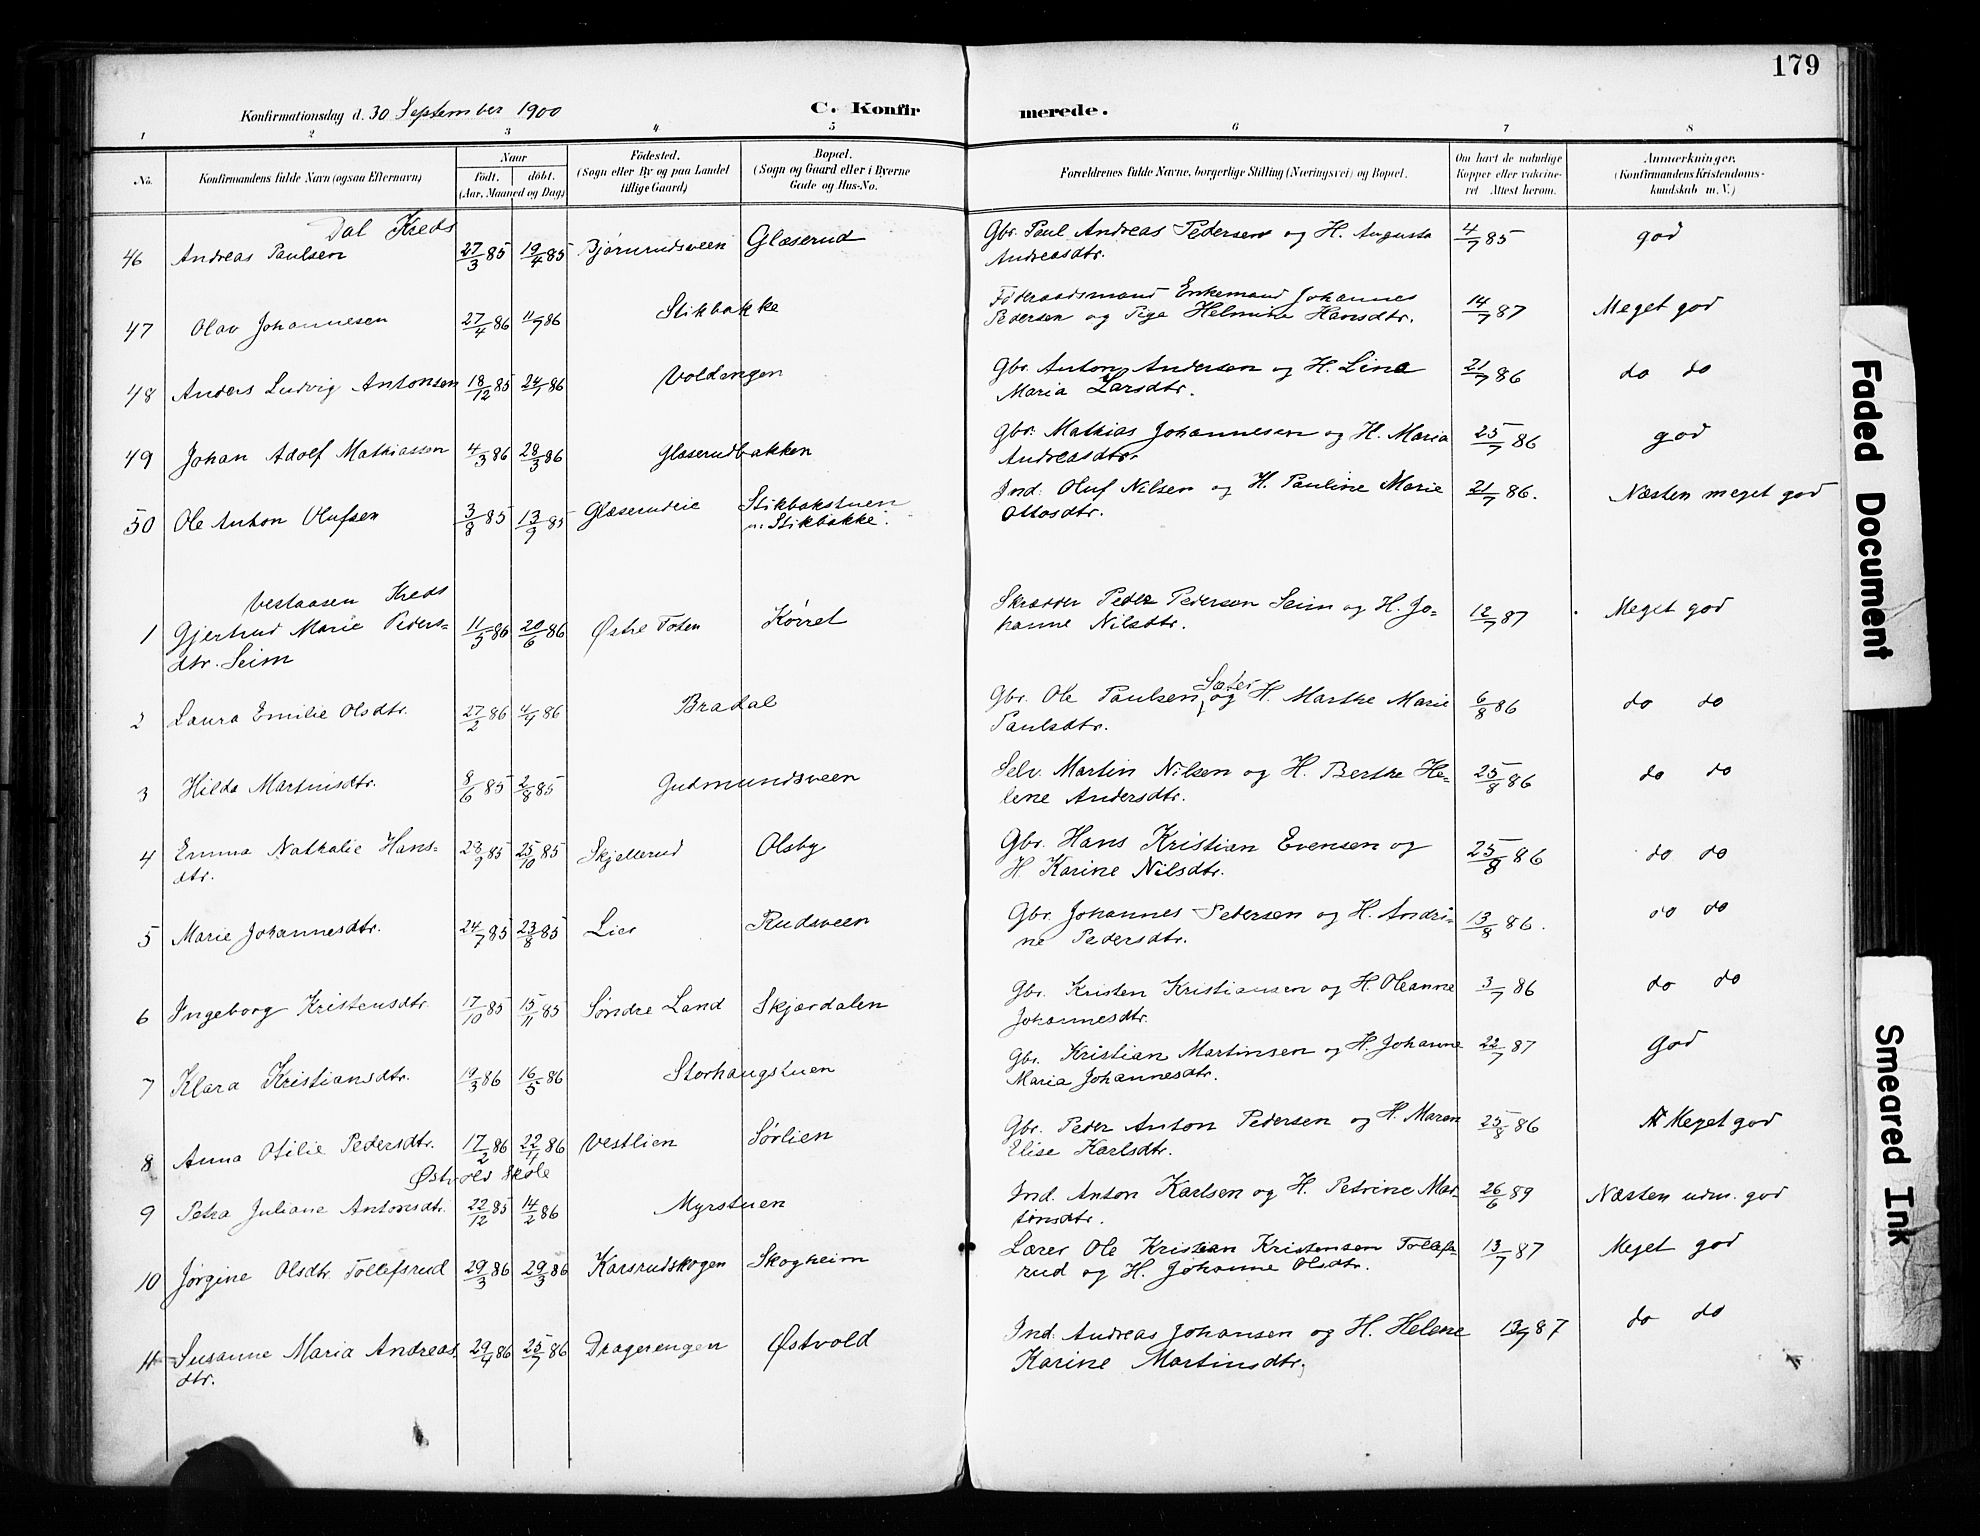 179
Konfirmationsdag d. 30 September 1900
C. Konfirmerede.
1 2 3 4 5 6 7 8
No.
Konfirmandens fulde Navn (ogsaa Efternavn)
Naar
födt. döbt.
(Aar, Maaned og Dag)
Födested.
(Sogn eller By og paa Landet
tillige Gaard)
Bopæl.
(Sogn og Gaard eller i Byerne
Gade og Hus-No.
Forældrenes fulde Navne, borgerlige Stilling (Næringsvei) og Bopæl.
Om havt de naturlige
Kopper eller vaccine-
ret Attest herom.
Anmærkninger.
(Konfirmandens Kristendoms-
kundskab m. V.)
Dal Kreds
46 Andreas Paulsen 27/3 85 19/4 85 Bjørnrudsveen Glæserud Gbr. Paul Andreas Pedersen og H. Augusta
Andreasdtr. 4/7 85 god
47 Olav Johannesen 27/4 86 11/7 86 Stikbakke Föderaadsmand Enkemand Johannes
Pedersen og Pige Helmine Hansdtr. 14/7 87 Meget god
48 Anders Ludvig Antonsen 18/12 85 24/1 86 Voldengen Gbr. Anton Andersen og H. Lina
Maria Larsdtr. 21/7 86 do do
49 Johan Adolf Mathiassen 4/3 86 28/3 86 Glæserudbakken Gbr. Mathias Johannesen og H. Maria
Andreasdtr. 25/7 86 god
50 Ole Anton Olufsen 3/8 85 13/9 85 Glæserudeie Stikbakstuen
u. Stikbakke. Ind. Oluf Nilsen og H. Pauline Marie
Ottosdtr. 21/7 86. Næsten meget god
Vestaasen Kreds
1 Gjertrud Marie Peders-
dtr. Seim 11/5 86 20/6 86 Østre Toten Kørret Skrædder Peder Pedersen Seim og H. Jo-
hanne Nilsdtr. 12/7 87 Meget god
2 Laura Emilie Olsdtr. 27/2 86 4/4 86 Bradal Gbr. Ole Paulsen Sæter og H. Marthe Marie
Paulsdtr. 6/8 86 do do
3 Hilda Martinsdtr. 8/6 85 2/8 85 Gudmundsveen Selv. Martin Nilsen og H. Berthe He-
lene Andersdtr. 25/8 86 do do
4 Emma Nathalie Hans-
dtr. 28/9 85 25/10 85 Skjellerud Olsby Gbr. Hans Kristian Evensen og
H. Karine Nilsdtr. 25/8 86 do do
5 Marie Johannesdtr. 24/7 85 23/8 85 Lier Rudsveen Gbr. Johannes Petersen og H. Andri-
ne Pedersdtr. 13/8 86. do do
6 Ingeborg Kristensdtr. 17/10 85 15/11 85 Søndre Land Skjærdalen Gbr. Kristen Kristiansen og H. Oleanne
Johannesdtr. 3/7 86 do do
7 Klara Kristiansdtr. 19/3 86 16/5 86 Storhaugstuen Gbr. Kristian Martinsen og H. Johanne
Maria Johannesdtr. 22/7 87 God
8 Anna Otilie Pedersdtr. 17/2 86 22/4 86 Vestlien Sørlien Gbr. Peder Anton Pedersen og H. Maren
Elise Karlsdtr. 25/8 86 Meget god
Østvold Skole
9 Petra Juliane Antonsdtr. 22/12 85 14/2 86 Myrstuen Ind. Anton Karlsen og H. Petrine Mar-
tinsdtr. 26/6 89 Næsten udm. god
10 Jørgine Olsdtr. Tollefsrud 29/3 86 29/3 86 Karsrudskogen Skogheim Lærer Ole Kristian Kristensen Tollefs-
rud og H. Johanne Olsdtr. 13/7 87 Meget god
11 Susanne Maria Andreas-
dtr. 29/4 86 25/7 86 Dragerengen Østvold Ind. Andreas Johansen og H. Helene
Karine Martinsdtr. 13/7 87 do do
Faded Document
Smeared Ink